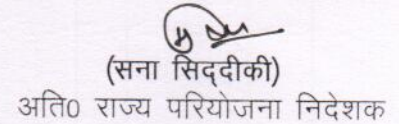 (सना सिद्दीकी)
अति0 राज्य परियोजना निदेशक